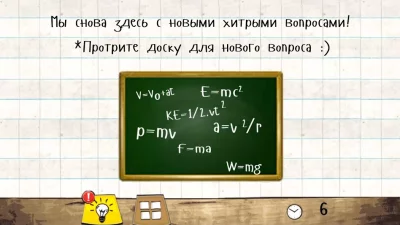 Мы снова здесь с новыми хитрыми вопросами!
*Протрите доску для нового вопроса :)
V=V₀+at E=mc²
KE=1/2.vt²
p=mv a=v²/r
F=ma
W=mg
!
6